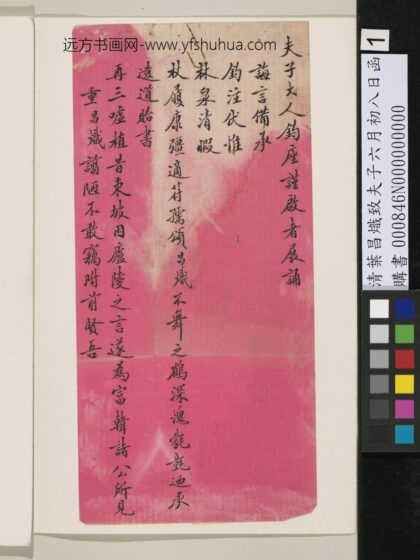 远方书画网-www.yfshuhua.com
夫子大人鈞座謹啟者展誦
誨言備承
鈞注伏惟
林泉清暇
杖履康彊適符孺頌昌熾不舞之鶴深愧氋氃迺承
遠道貽書
再三噓植昔東坡因廬陵之言遂為富韓諸公所見
重昌熾謭陋不敢竊附前賢吾
1
清葉昌熾致夫子六月初八日函
購書 000846N0000000000